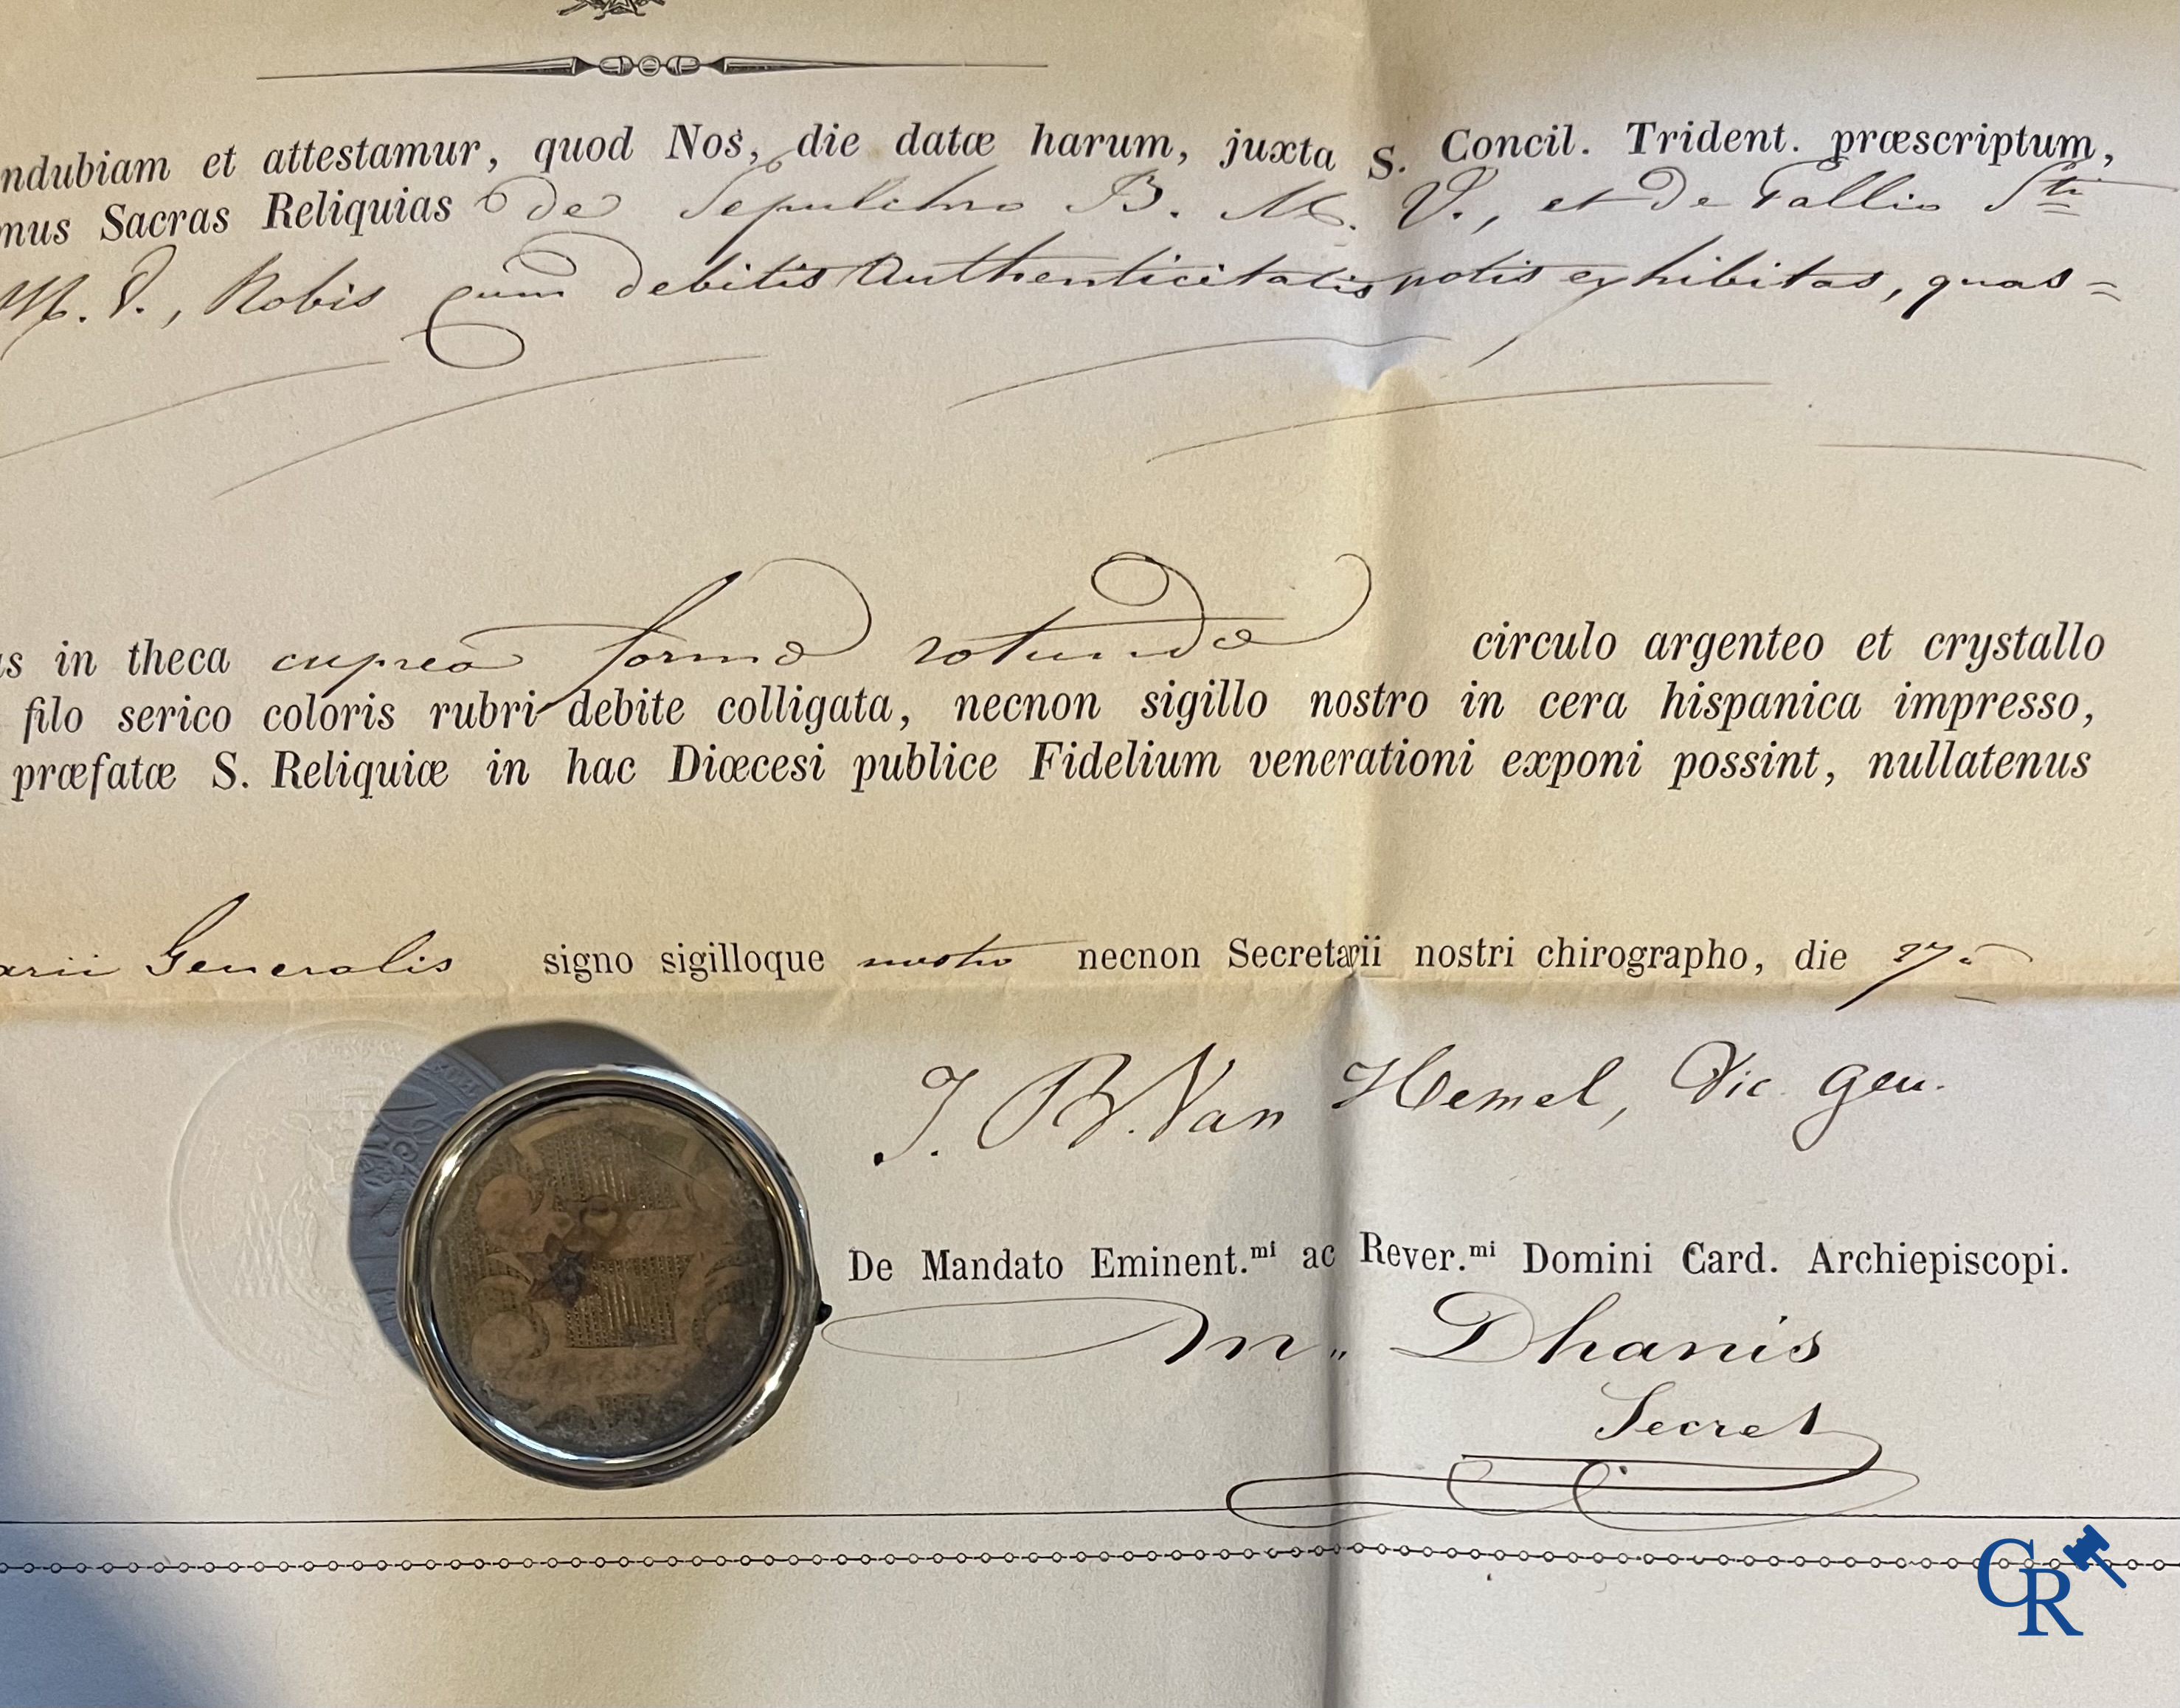 ndubiam et attestamur, quod Nos, die datæ harum, juxta S. Concil. Trident. præscriptum,
mus Sacras Reliquias de Sepulchro B. M. V., et de Pallio Sti
M. V., Nobis cum debitis Authenticitatis notis exhibitas, quas=
as in theca cuprea forma rotunda circulo argenteo et crystallo
filo serico coloris rubri debite colligata, necnon sigillo nostro in cera hispanica impresso,
præfatæ S. Reliquiæ in hac Diœcesi publice Fidelium venerationi exponi possint, nullatenus
arii Generalis signo sigilloque nostro necnon Secretarii nostri chirographo, die
J. B. Van Hemel, Vic. Gen.
De Mandato Eminent.mi ac Rever.mi Domini Card. Archiepiscopi.
M. Dhanis
Secret
CR